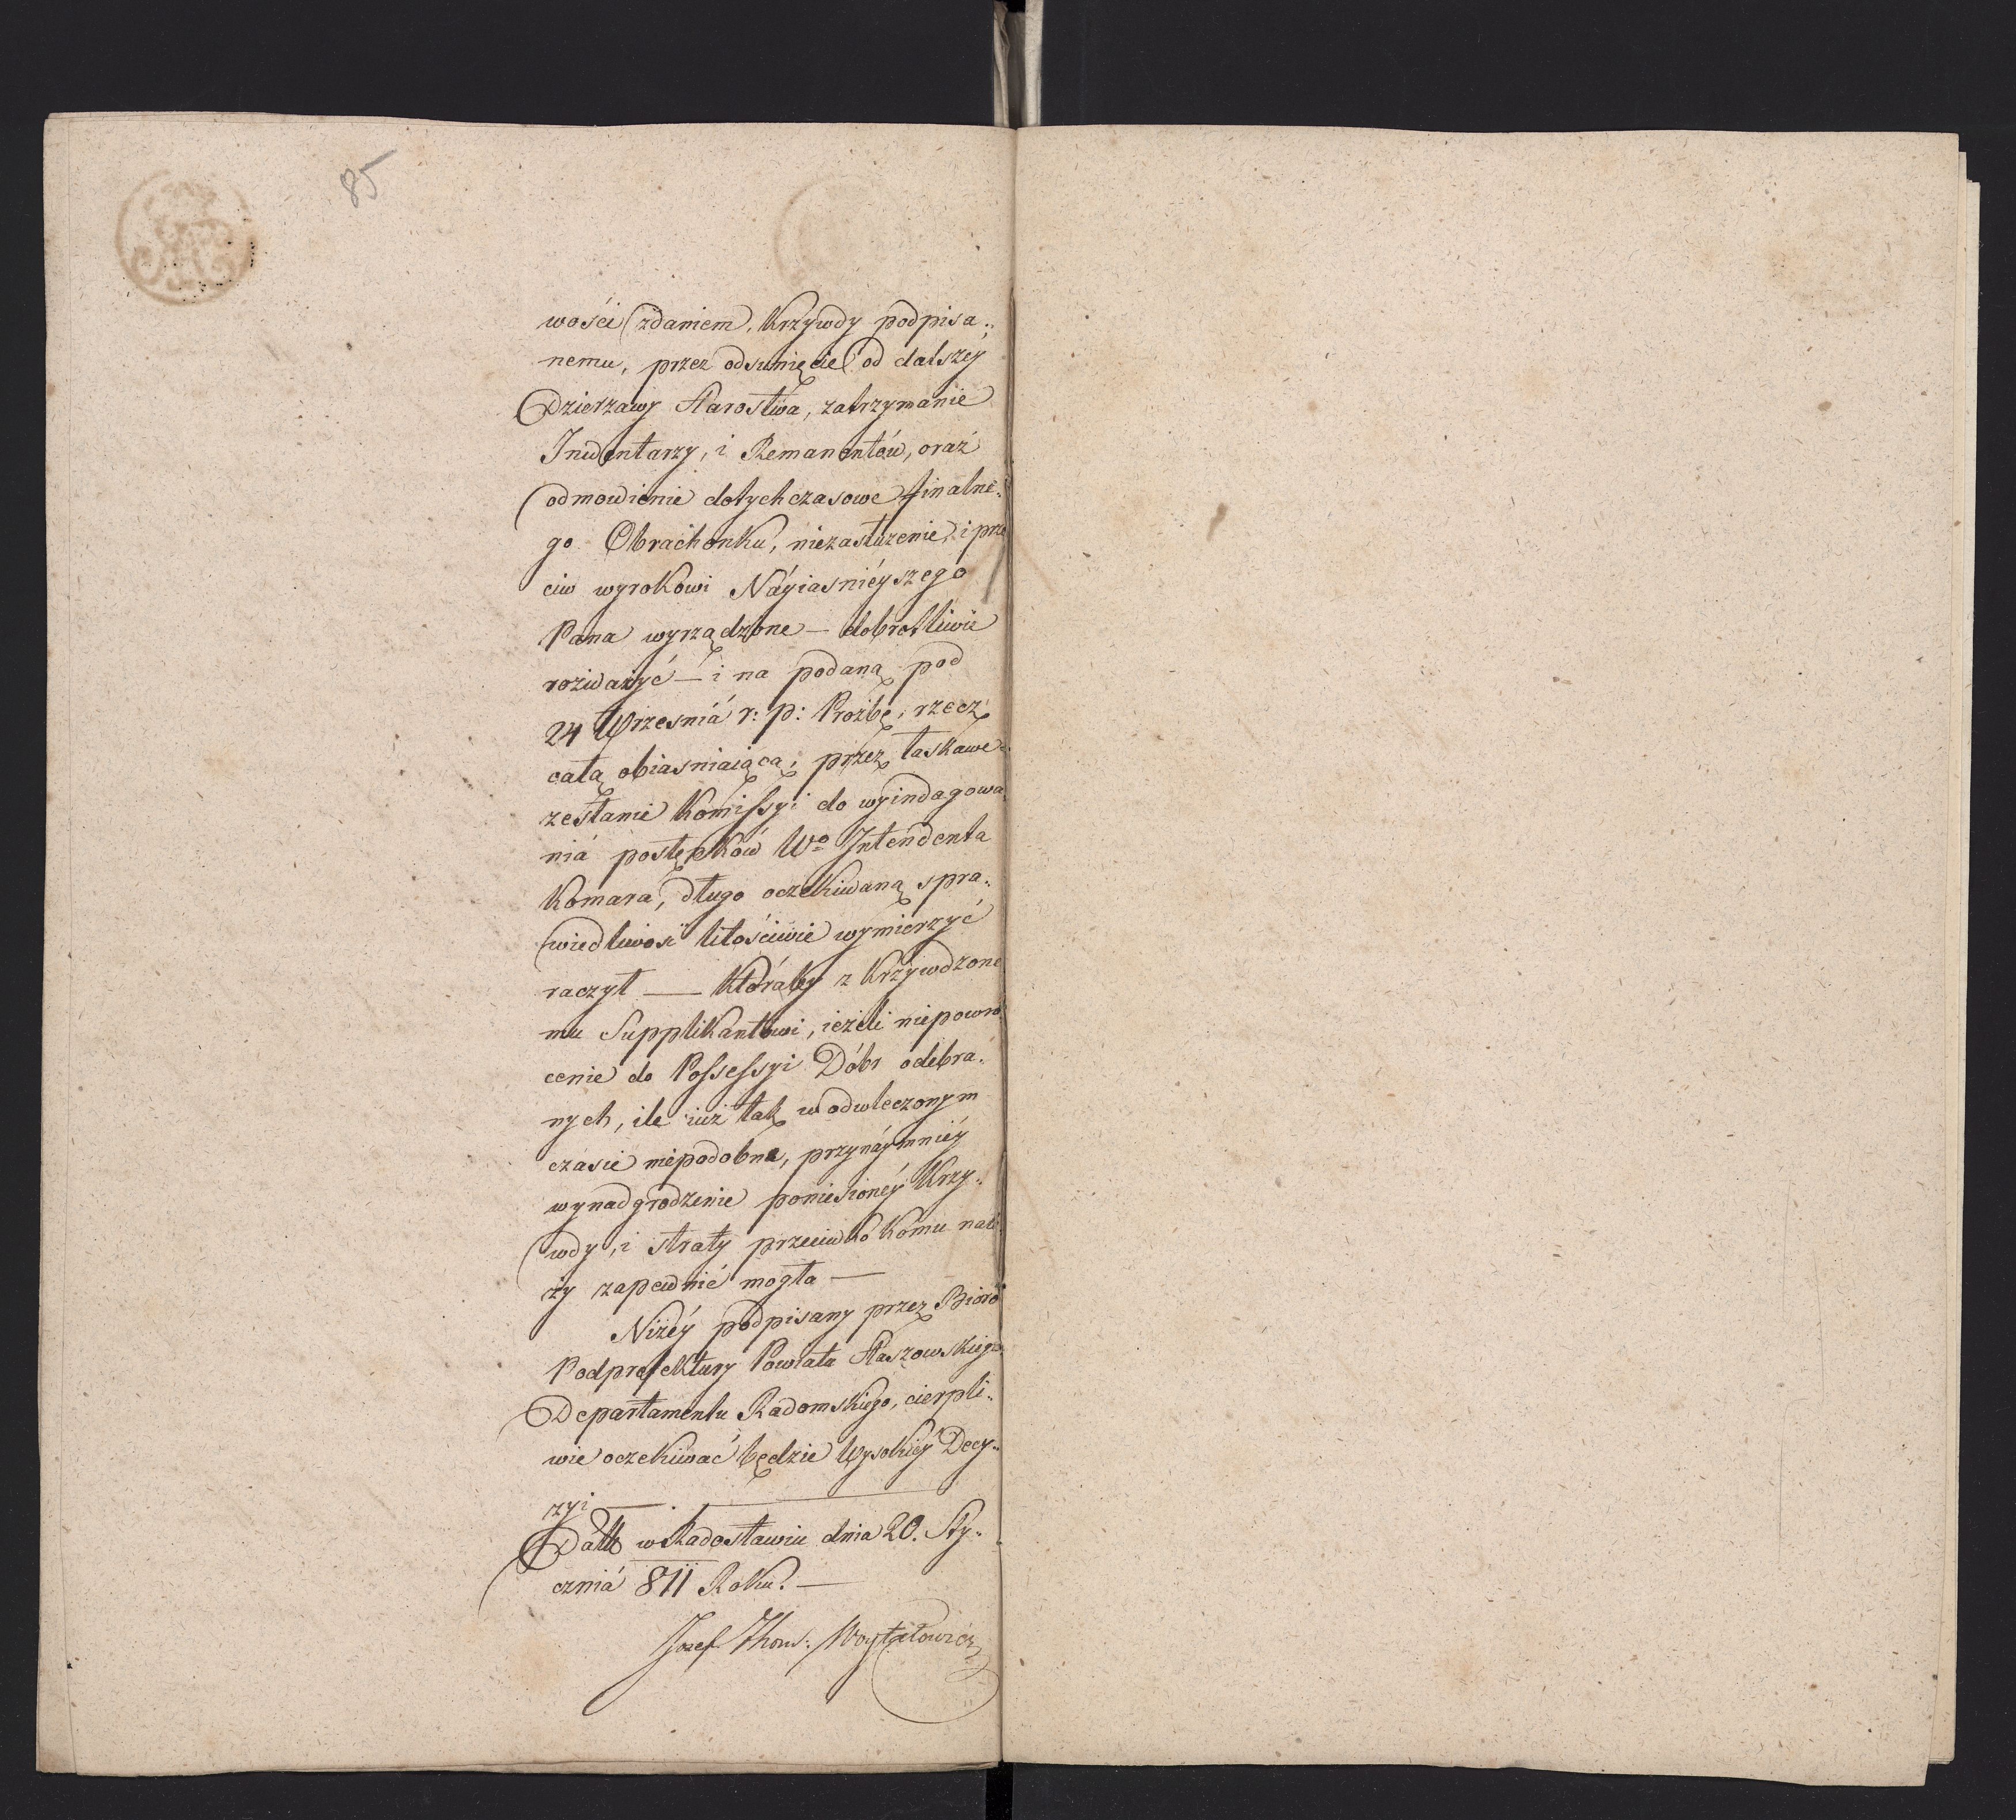 85
wości zdaniem, Krzywdy podpisa„
nemu, przez odsunięcie od dalszéy
Dzierzawy Starostwa, zatrzymanie
Inwentarzy, i Remanentów, oraz
odmowienie dotychczasowe finalne„
go Obrachonku, niezasłuzenie, i prze
ciw wyrokowi Náyiasniéyszego
Pana wyrządzone — dobrotliwie
rozważyć — i na podaną pod
24 Wrzesniá r: p: Prozbę, rzecz
całą obiasniaiącą, przez łaskawe
zesłanie Komissyi do wyindagowa„
niá postępków Wo Intendenta
Komara, długo oczekiwaną spra„
wiedliwość litościwie wymierzyć
raczył — któráby z Krzywdzone
mu Supplikantowi, ieżeli niepowró
cenie do Possessyi Dóbr odebra„
nych, ile iuż tak w odwleczonym
czasie niepodobne, przynáymniéy
wynadgrodzenie poniesionéy Krzy„
wdy, i straty przeciwko komu nale
ży zapewnić mogła —
Niżéy podpisany przez Bióro
Podprefektury Powiatu Staszowskiego
Departamentu Radomskiego, cierpli„
wie oczekiwać będzie Wysokiéy Decy„
zyi —
Datt w Radosławiu dnia 20. Sty„
czniá 811 Roku. —
Jozef Thom: Woytałowicz